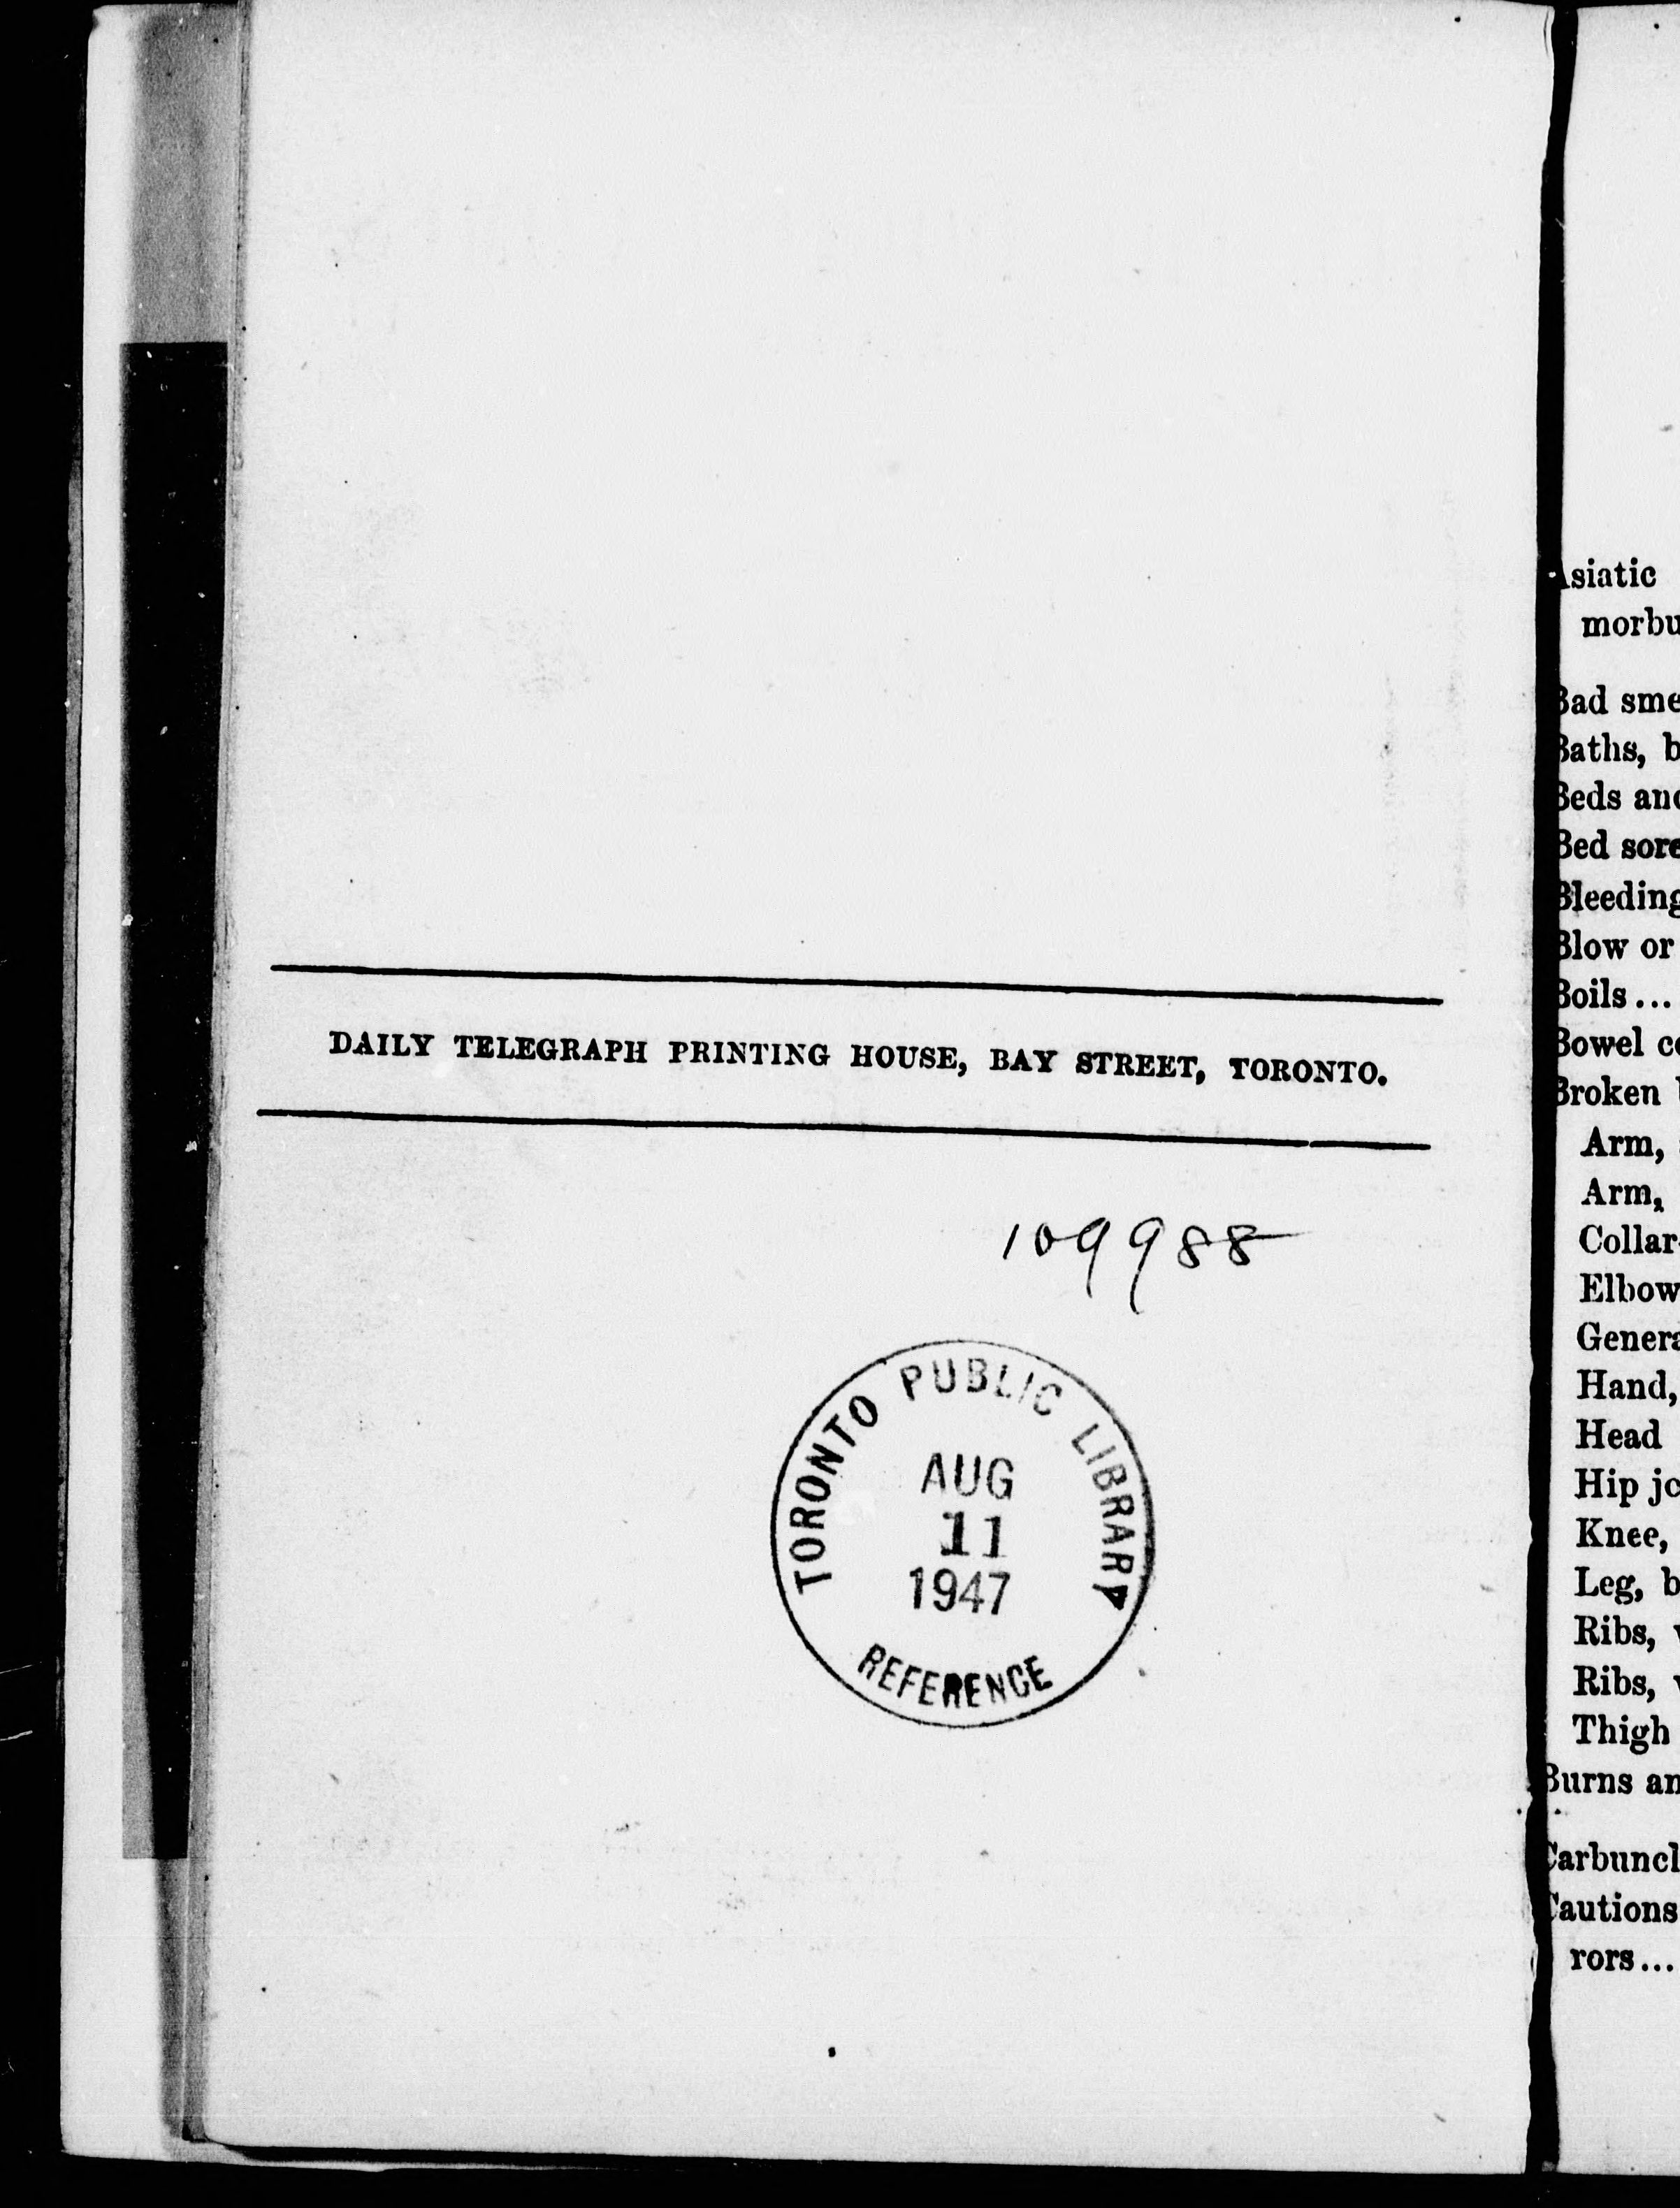 DAILY TELEGRAPH PRINTING HOUSE, BAY STREET, TORONTO.
109988
TORONTO PUBLIC LIBRARY
AUG
11
1947
REFERENCE
siatic
morbu
Bad sme
Baths, b
Beds and
Bed sore
Bleeding
Blow or
Boils...
Bowel co
Broken
Arm,
Arm,
Collar-
Elbow
Genera
Hand,
Head
Hip jo
Knee,
Leg, b
Ribs,
Ribs,
Thigh
Burns an
Carbuncl
Cautions
rors...